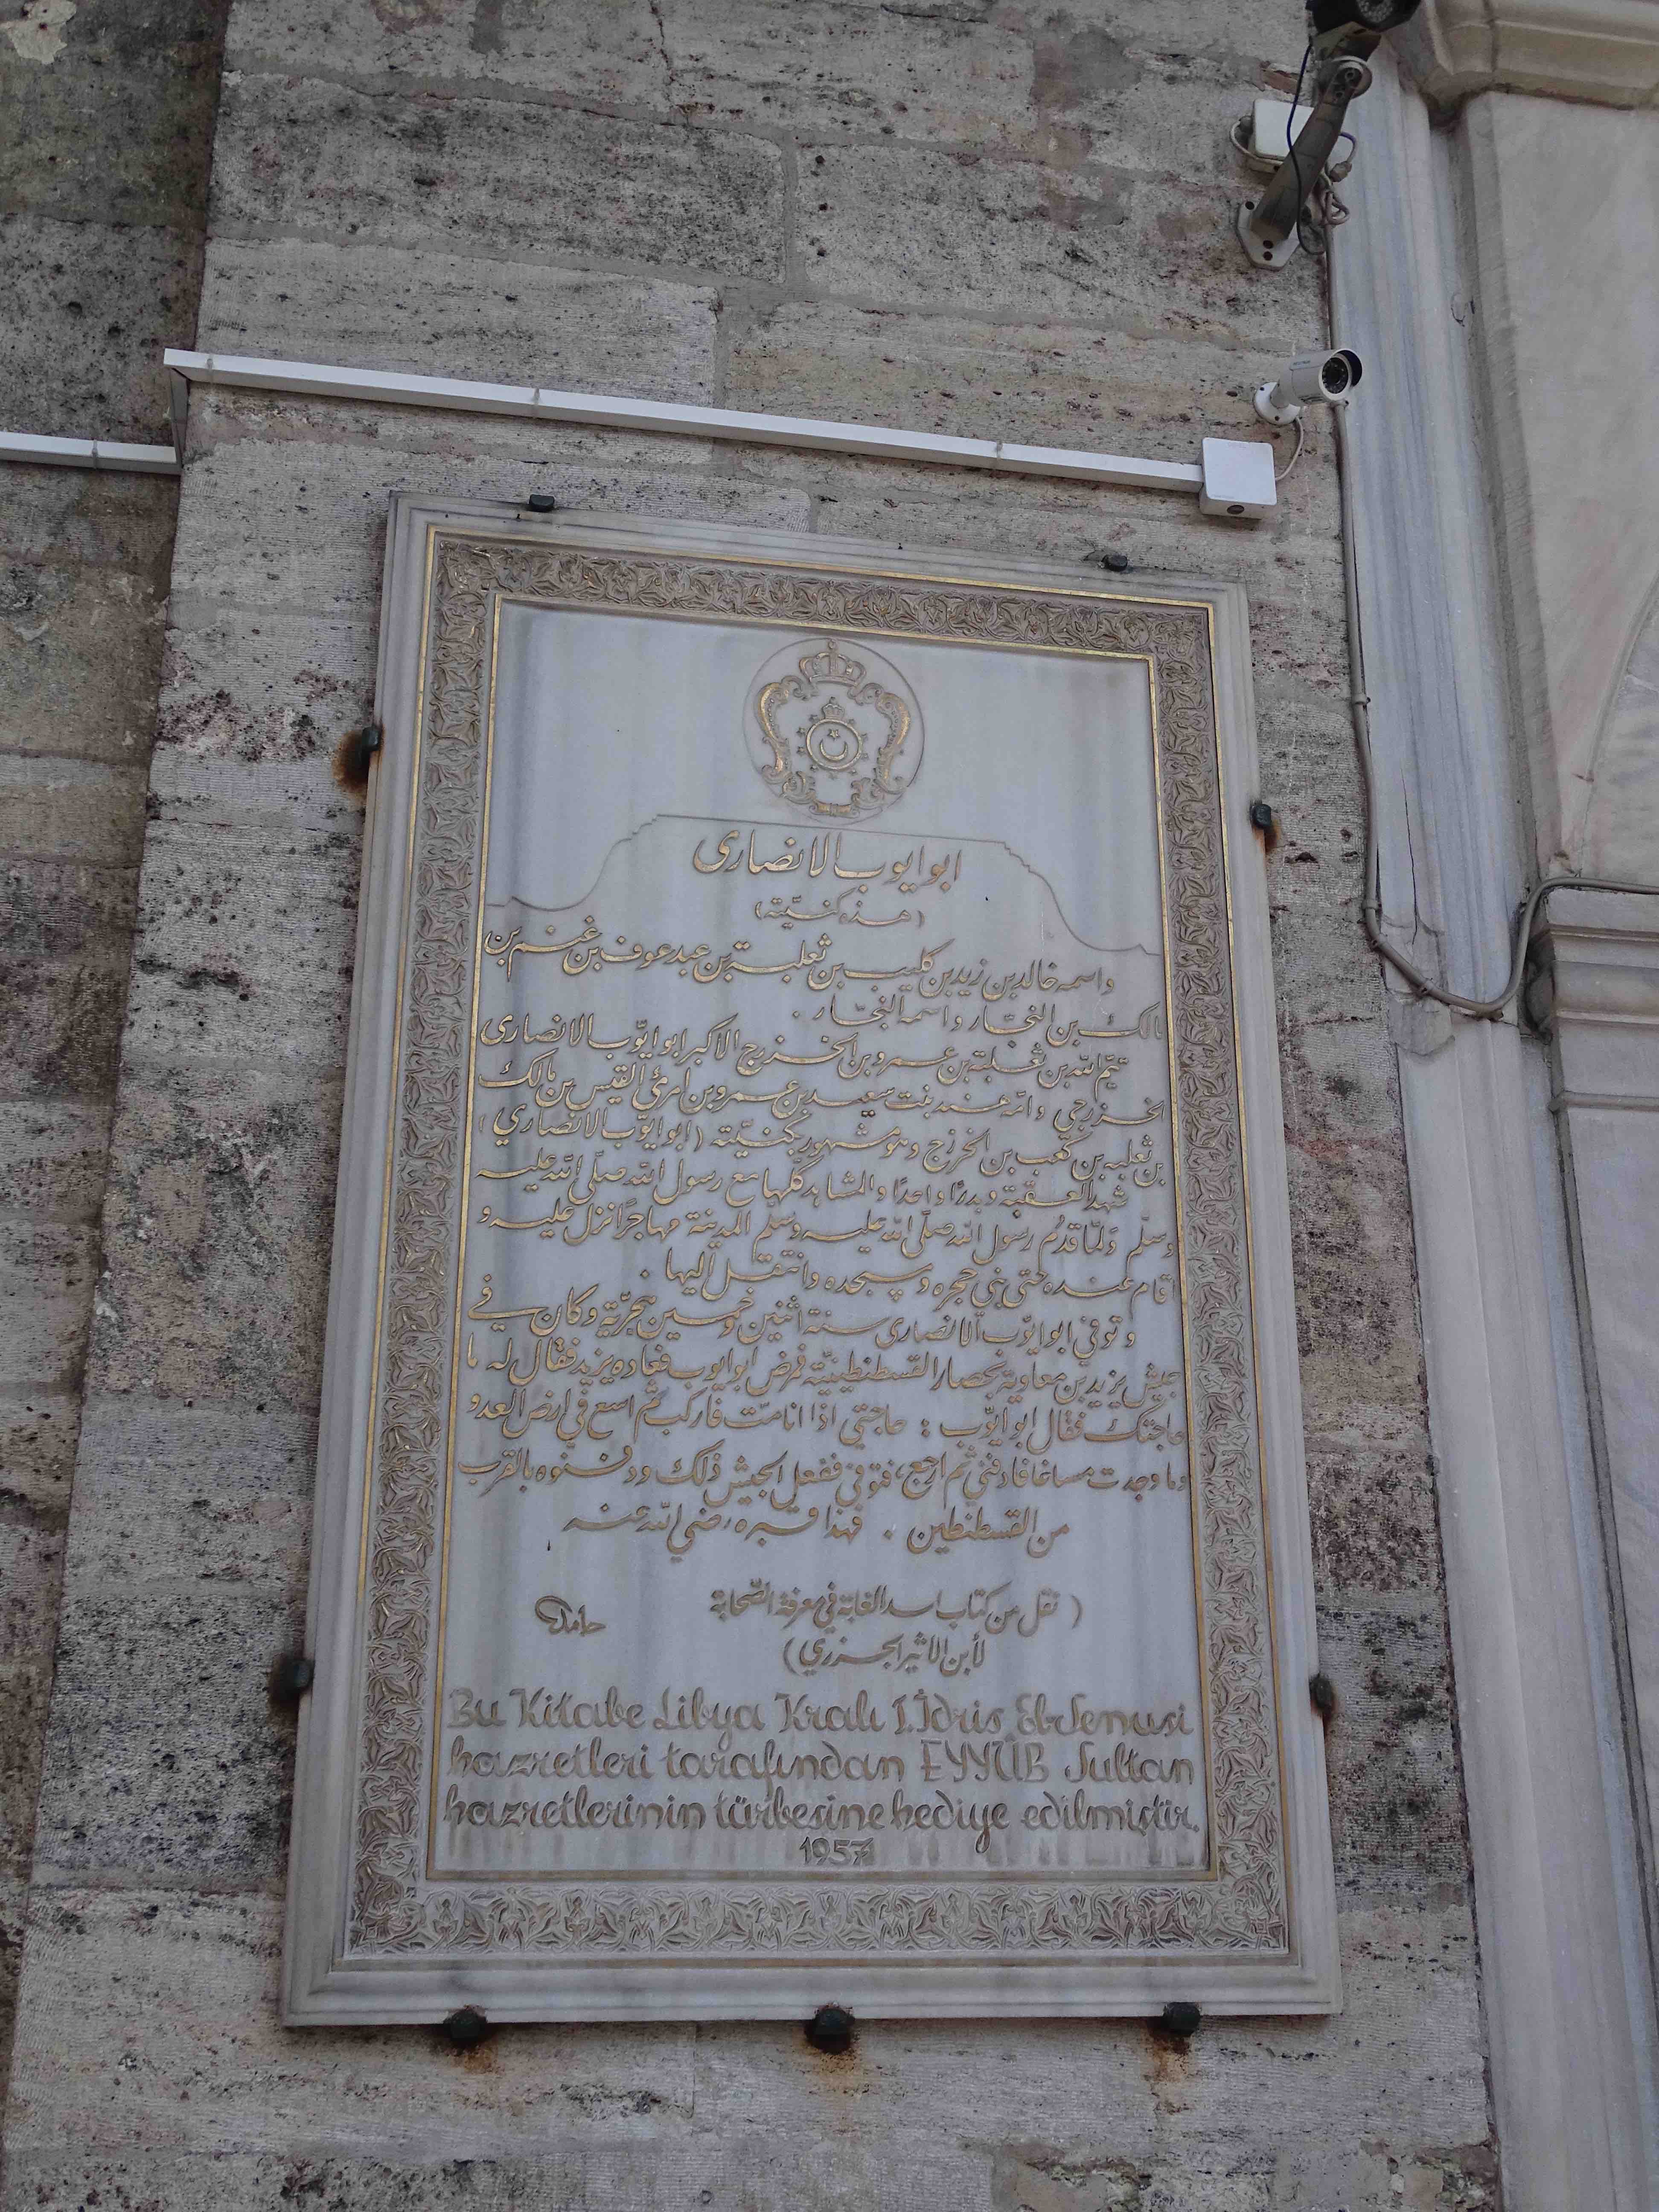 ابو ايوب الانصارى
(هذه كنيّته)
واسمه خالد بن زيد بن كليب بن ثعلبة بن عبد عوف بن غنم بن
مالك بن النجّار واسمه النجّار .
تيّم الله بن ثعلبة بن عمرو بن الخزرج الاكبر ابو ايّوب الانصارى
الخزرجي وامّه هند بنت سعيد بن عمرو بن امرئ القيس بن مالك
بن ثعلبه بن كعب بن الخزرج وهو مشهور بكنيّته (ابو ايوّب الانصاري)
شهد العقبة وبدرًا واحدًا والمشاهد كلّها مع رسول الله صلّى الله عليه
وسلّم ولمّا قدم رسول الله صلّى الله عليه وسلم المدينة مهاجرًا نزل عليه و
اقام عنده حتى بنى حجره ومسجده وانتقل اليها .
وتوفي ابو ايوّب الانصارى سنة اثنين وخمسين هجريّة وكان في
جيش يزيد بن معاوية بحصار القسطنطينيّة فمرض ابو ايوب فعاده يزيد فقال له ما
حاجتك فقال ابو ايوّب : حاجتي اذا انا متّ فاركب ثم اسع في ارض العدو
وما وجدت مساغا فادفني ثم ارجع، فتوفي ففعل الجيش ذلك ودفنوه بالقرب
من القسطنطين . فهذا قبره رضي الله عنه
( نقل من كتاب اسد الغابة في معرفة الصّحابة
لأبن الاثير الجزري )
حامد
Bu Kitabe Libya Kralı I. İdris Elsenusi
hazretleri tarafından EYYÜB Sultan
hazretlerinin türbesine hediye edilmiştir.
1957